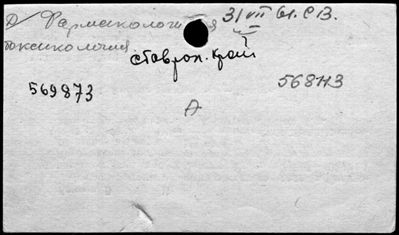 Д/ Фармакология 31 VII 61. С В.
токсикология
ставроп. край
569873 568113
А